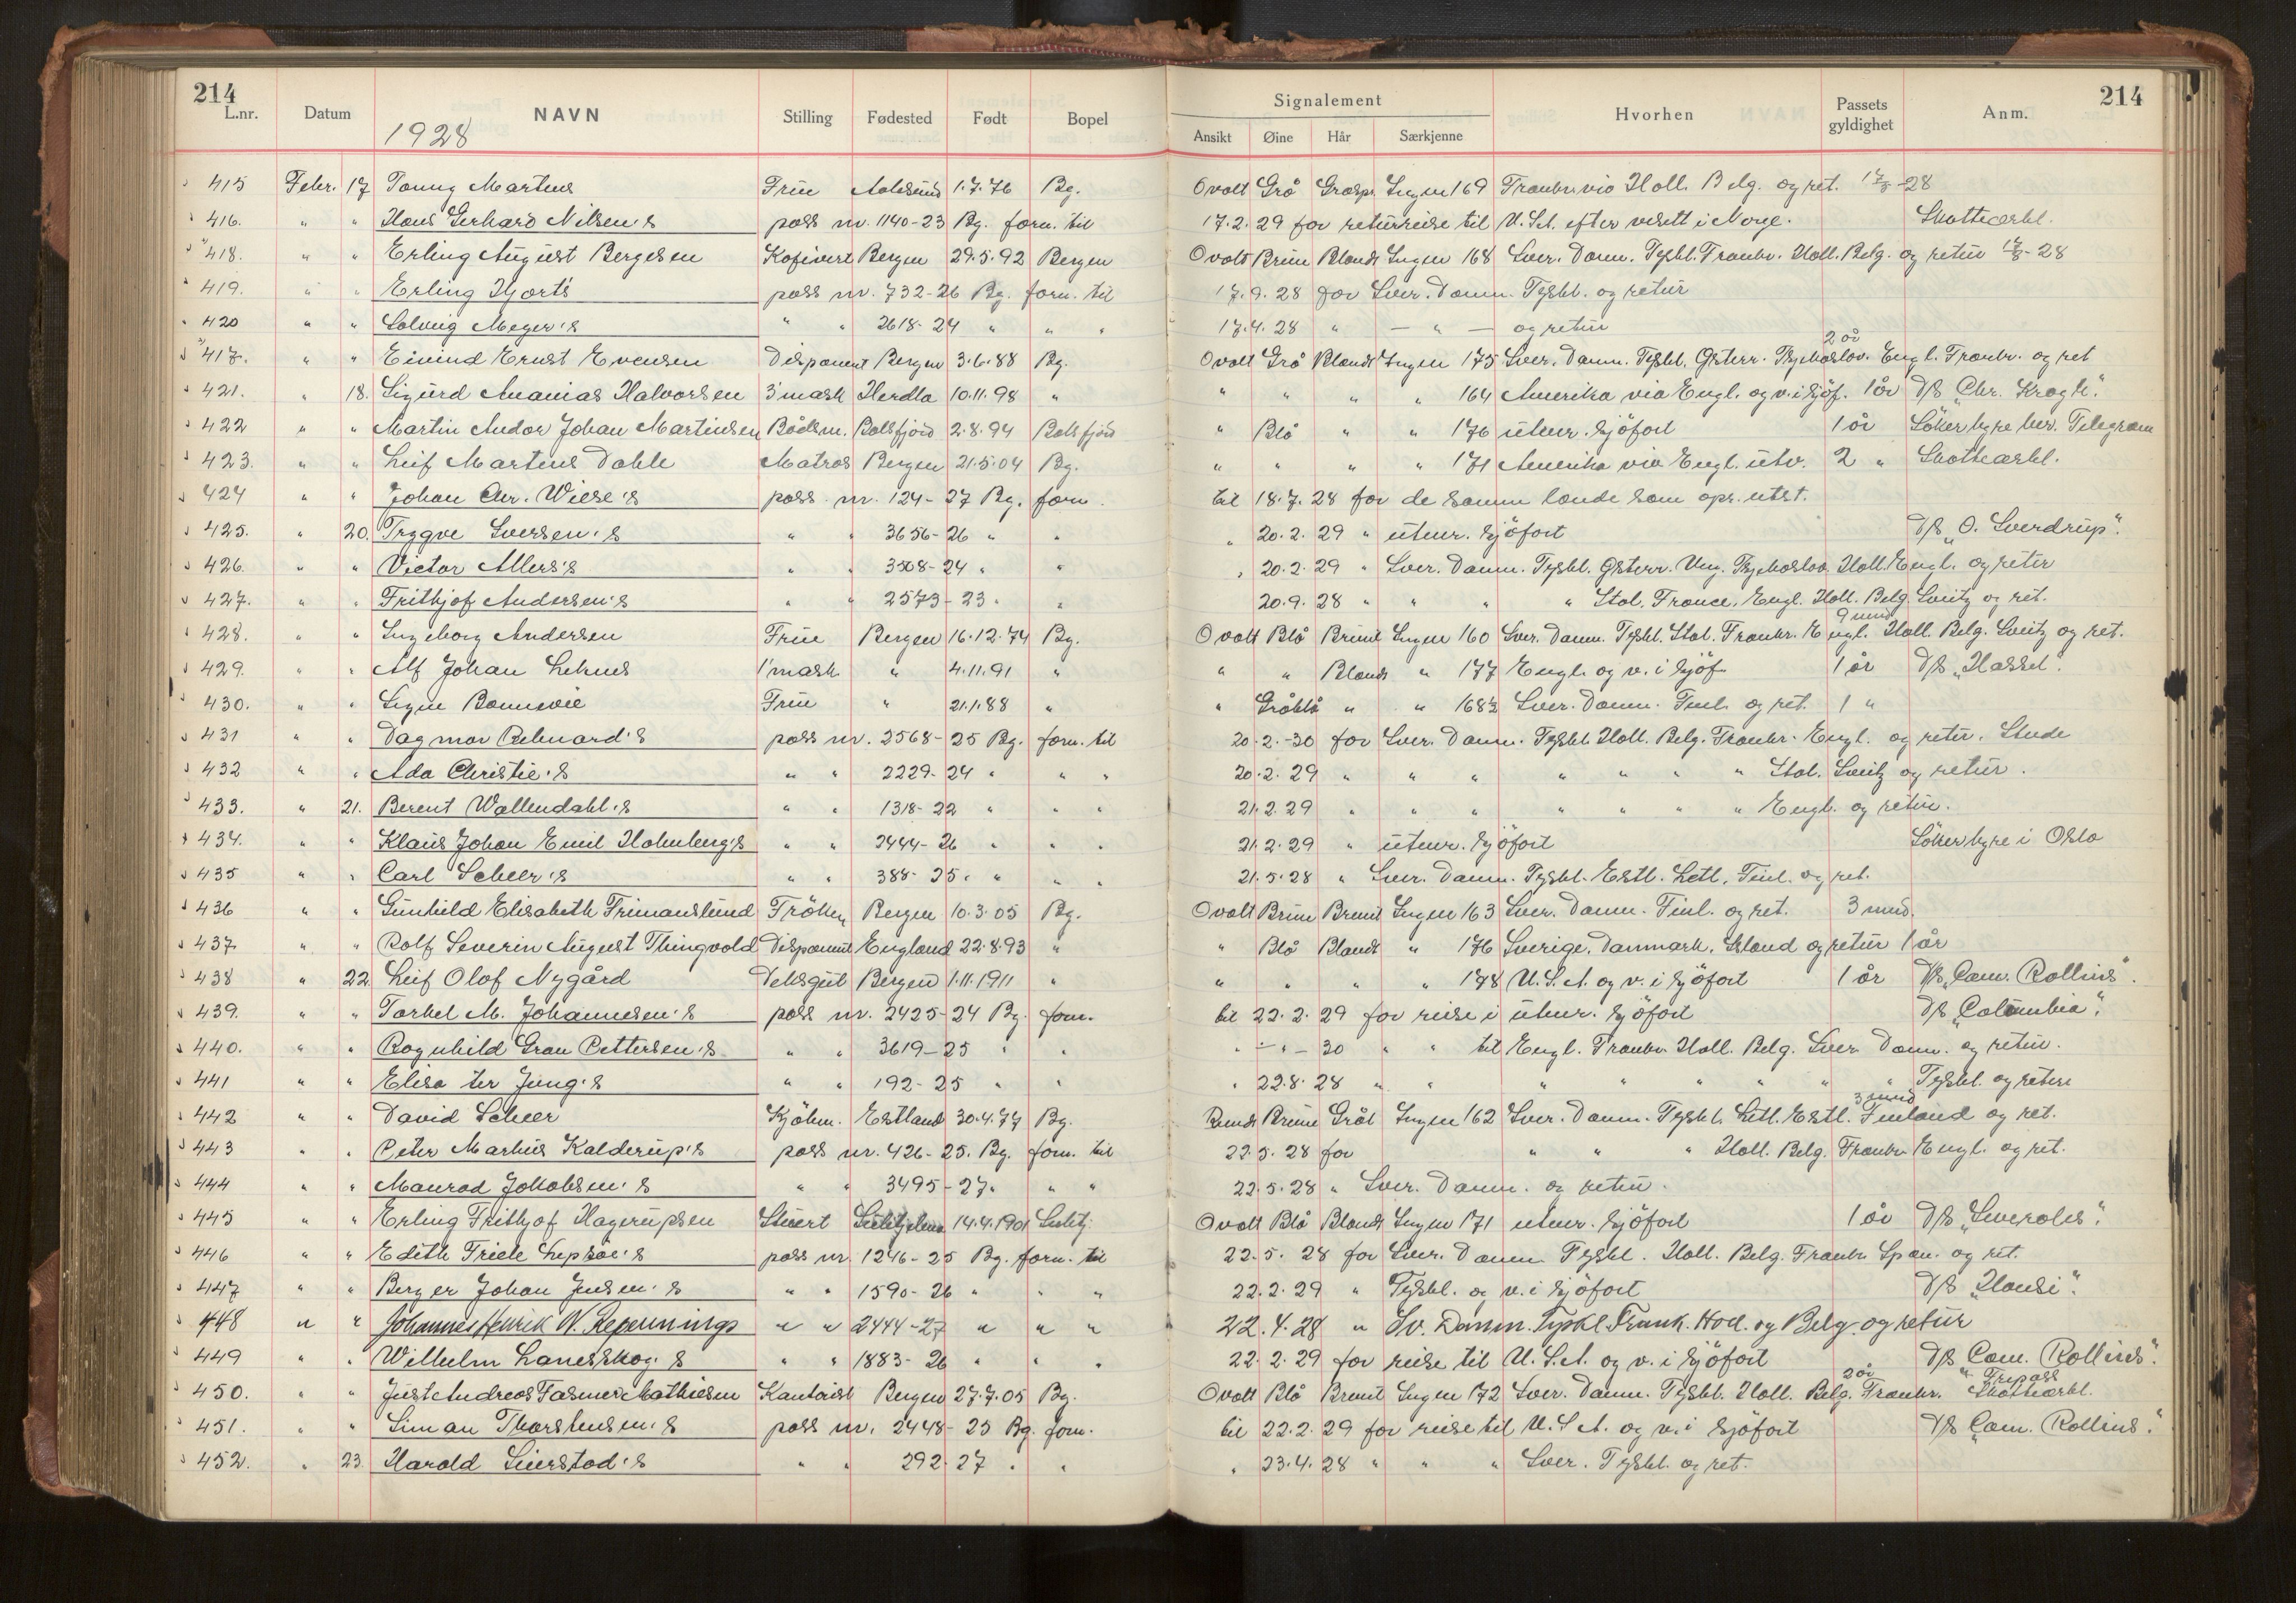 214 214
Signalement
L.nr. Datum NAVN Stilling Fødested Født Bopel Ansikt Øine Hår Særkjenne Hvorhen Passets gyldighet Anm.
1928
415 Febr. 17 Martens Frue Aalesund 1.7.76 Bg. Ovalt Grå Ingen 169 Frankr. via Holl. Belg. og ret. 17/8-28
416. " " Hans Gerhard Nilsen's pass nr. 1140-23 Bg. forn. til 17.2.29 for returreise til U.St. efter visett i Norge. Skatteatst.
418. " " Erling August Bergesen Bergen 29.5.92 Bergen Ovalt Brune Blondt Ingen 168 Sver. Danm. Tyskl. Frankr. Holl. Belg. og retur 17/8-28
419. " " Erling Hjort's pass nr. 732-26 Bg. forn. til 17.9.28 for Sver. Danm. Tyskl. og retur
420 " " Solveig Meyer's " " 2618-24 " " " 17.4.28 " — " — og retur
417. " " Eivind Ernst Evensen Disponent Bergen 3.6.88 Bg. Ovalt Grå Blondt Ingen 175 Sver. Danm. Tyskl. Østerr. Tsjekoslov. Engl. Frankr. og ret 2 år
421. " 18. Sigurd Ananias Halvorsen 3' mask Herdla 10.11.98 " " " " " 164 Amerika via Engl. og v. i sjöf. 1 år D/S "Chr. Krogh".
422 " " Martin Andor Johan Martinsen Bådsm. Balsfjord 2.8.94 Balsfjord " Blå " " 176 utenr. sjöfart 1 år Söker hyre her. Telegram
423. " " Leif Martens Dahle Matros Bergen 21.5.04 Bg. " " " " 171 Amerika via Engl. utv. 2 "
424 " " Johan Chr. Wiese's pass nr. 124-27 Bg. forn. til 18.7.28 for de samme lande som opr. utst.
425. " 20. Trygve Iversen's " " 3656-26 " " " 20.2.29 " utenr. sjöfart D/S "O. Sverdrup".
426. " " Victor Allers's " " 3568-24 " " " 20.2.29 " Sver. Danm. Tyskl. Østerr. Ung. Tsjekoslov. Holl. Engl. og retur
427. " " Frithjof Andersen's " " 2573-23 " " 20.9.28 " " " " Ital. France. Engl. Holl. Belg. Sveitz og ret.
428. " " Ingeborg Andersen Frue Bergen 16.12.74 Bg. Ovalt Blå Brunt Ingen 160 Sver. Danm. Tyskl. Ital. Frankr. Engl. Holl. Belg. Sveitz og ret. 9 mnd
429. " " Alf Johan Lehns 1' mask " 4.11.91 " " " Blondt " 177 Engl. og v. i sjöf. 1 år D/S "Hassel".
430. " " Signe Frue " 21.1.88 " " Gråblå " " 168½ Sver. Danm. Finl. og ret. 1 "
431 " " Dagmar pass nr. 2568-25 Bg. forn. til 20.2.-30 for Sver. Danm. Tyskl. Holl. Belg. Frankr. Engl. og retur.
432 " " Ada Christie's " " 2229-24 " " " 20.2.29 " " " " " " " Ital. Sveitz og retur.
433. " 21. Berent Wallendahl's " " 1318-22 " " " 21.2.29 " " " " " " " Engl. og retur.
434. " " Klaus Johan Emil Holmberg's " " 2444-26 " " " 21.2.29 " utenr. sjöfart Söker hyre i Oslo
435 " " Carl Scheer's " " 388-25 " " " " 21.5.28 " Sver. Danm. Tyskl. Estl. Letl. Finl. og ret.
436 " " Gunhild Elisabeth Frimanslund Fröken Bergen 10.3.05 Bg. Ovalt Brune Brunt Ingen 163 Sver. Danm. Finl. og ret. 3 mnd.
437 " " Rolf Severin August Thingvold Disponent England 22.8.93 " " Blå Blondt " 176 Sverige. Danmark. Island og retur 1 år
438 " 22. Leif Olof Nygård Deksgut Bergen 1.11.1911 " " " " " 178 U.S.A. og v. i sjöfart 1 år D/S "Cam. Rollins".
439. " " Torkel M. Johannesen's pass nr. 2425-24 Bg. forn. til 22.2.29 for reise i utenr. sjöfart D/S "Columbia".
440. " " Ragnhild Gran Pettersen's " " 3619-25 " " " - " - 30 " " til Engl. Frankr. Holl. Belg. Sver. Danm. og retur.
441 " " Elisa ter Jung's " " 192-25 " " " 22.8.28 " " " " " " " " Tyskl. og retur
442 " " David Scheer Kjöbm. Estland 30.4.77 Bg. Rundt Brune Grått Ingen 162 Sver. Danm. Tyskl. Letl. Estl. Finland og ret. 3 mnd
443 " " Peter Markus Kalderup's pass nr. 426-25. Bg. forn. til 22.5.28 for " " " Holl. Belg. Frankr. Engl. og ret.
444 " " Manrad Jakobsen's " " 3495-27 " " " 22.5.28 " Sver. Danm. og retur.
445 " " Erling Frithjof Hagerupsen Stuert Sulitjelma 14.4.1901 Sulitj. Ovalt Blå Blondt Ingen 171 utenr. sjöfart 1 år D/S
446 " " Edith Friele Lepsøe's pass nr. 1246-25 Bg. forn. til 22.5.28 for Sver. Danm. Tyskl. Holl. Belg. Frankr. Span. og ret.
447 " " Berger Johan Jensen's " " 1590-26 " " " 22.2.29 " Tyskl. og v. i sjöfart D/S "Hansi".
448 " " Johannes Henrik W. Repennings " " 2444-27 " " " 22.4.28 " Sv. Danm. Tyskl. Frank. Holl. og Belg. og retur
449 " " Wilhelm Laneskog's " " 1883-26 " " " 22.2.29 for reise til U.S.A. og v. i sjöfart D/S "Cam. Rollins".
450. " " Just Andreas Fasmer Mathiesen Kontorist Bergen 27.7.05 Bg. Ovalt Blå Brunt Ingen 172 Sver. Danm. Tyskl. Holl. Belg. Frankr. 2 år Fripass
451. " " Simon Thorstensen's pass nr. 2448-25 Bg. forn. til 22.2.29 for reise til U.S.A. og v. i sjöfart D/S "Cam. Rollins".
452. " 23. Harald Siverstad's " " 292-27 " " " 23.4.28 " " " Sver. Tyskl. og ret.